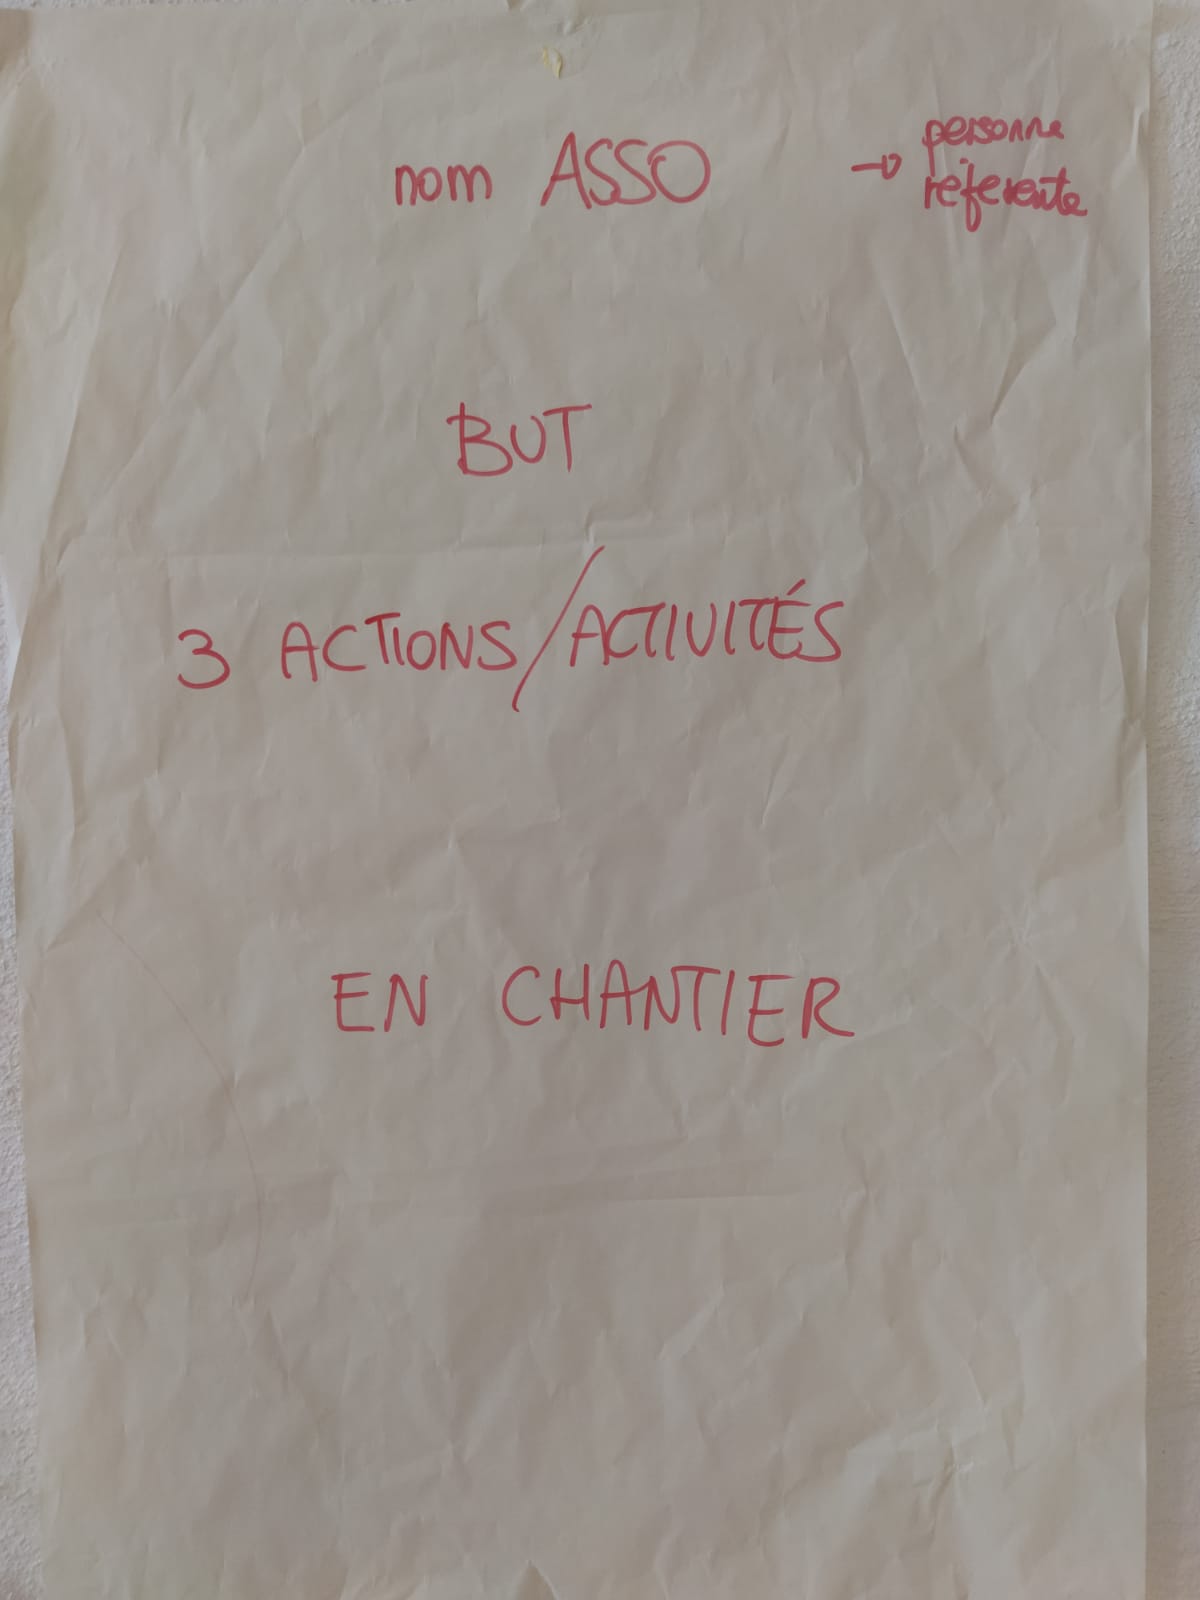 nom ASSO → personne
référente
BUT
3 ACTIONS/ACTIVITÉS
EN CHANTIER